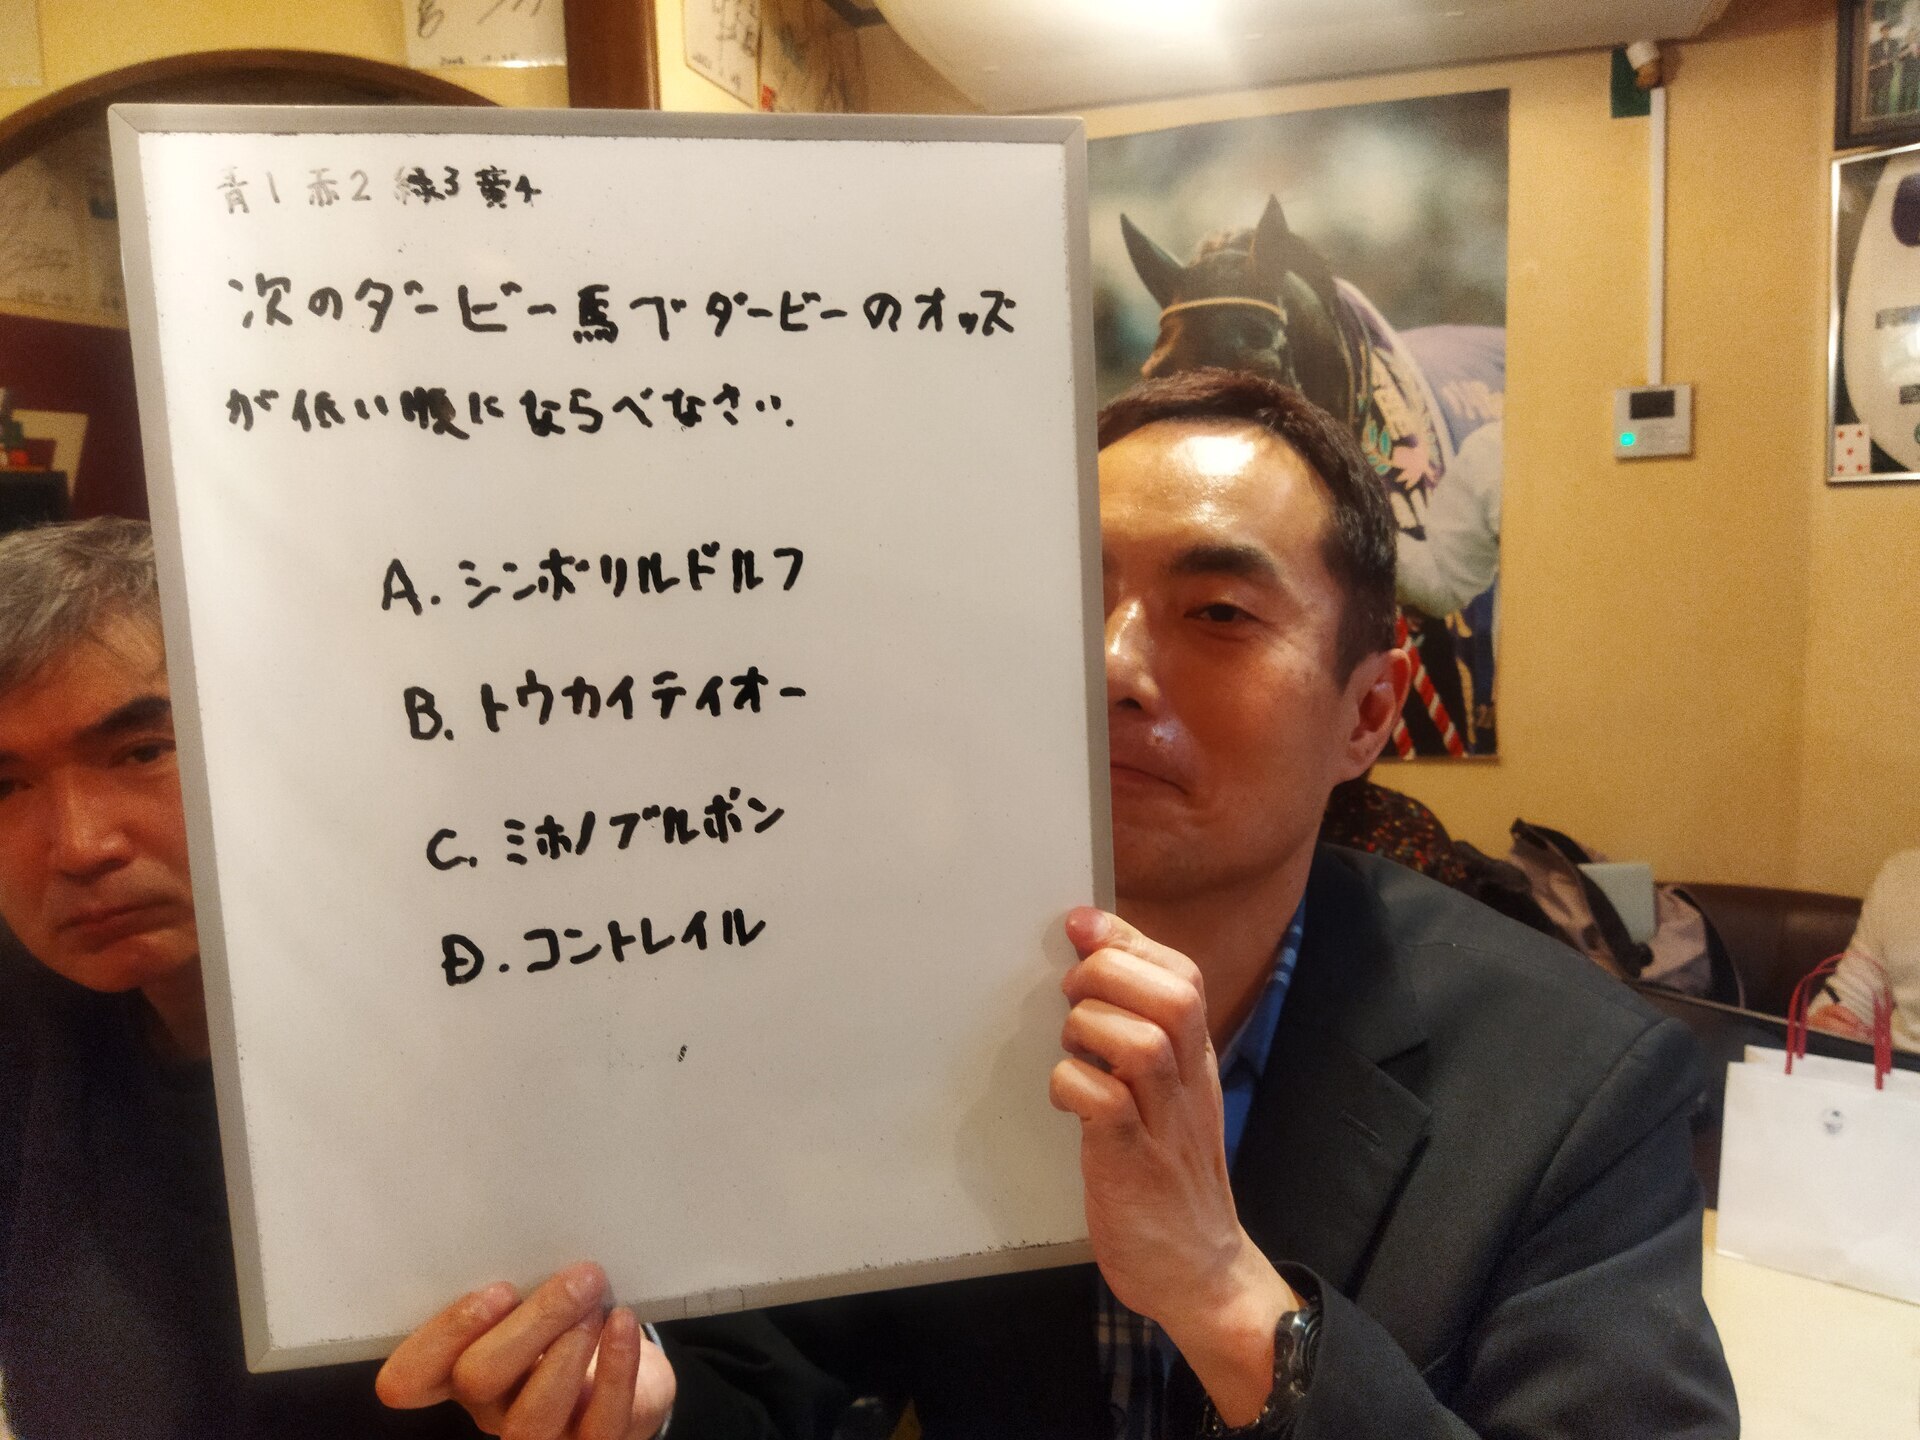 青1 赤2 緑3 黄4
次のダービー馬でダービーのオッズ
が低い順にならべなさい.
A. シンボリルドルフ
B. トウカイテイオー
C. ミホノブルボン
D. コントレイル